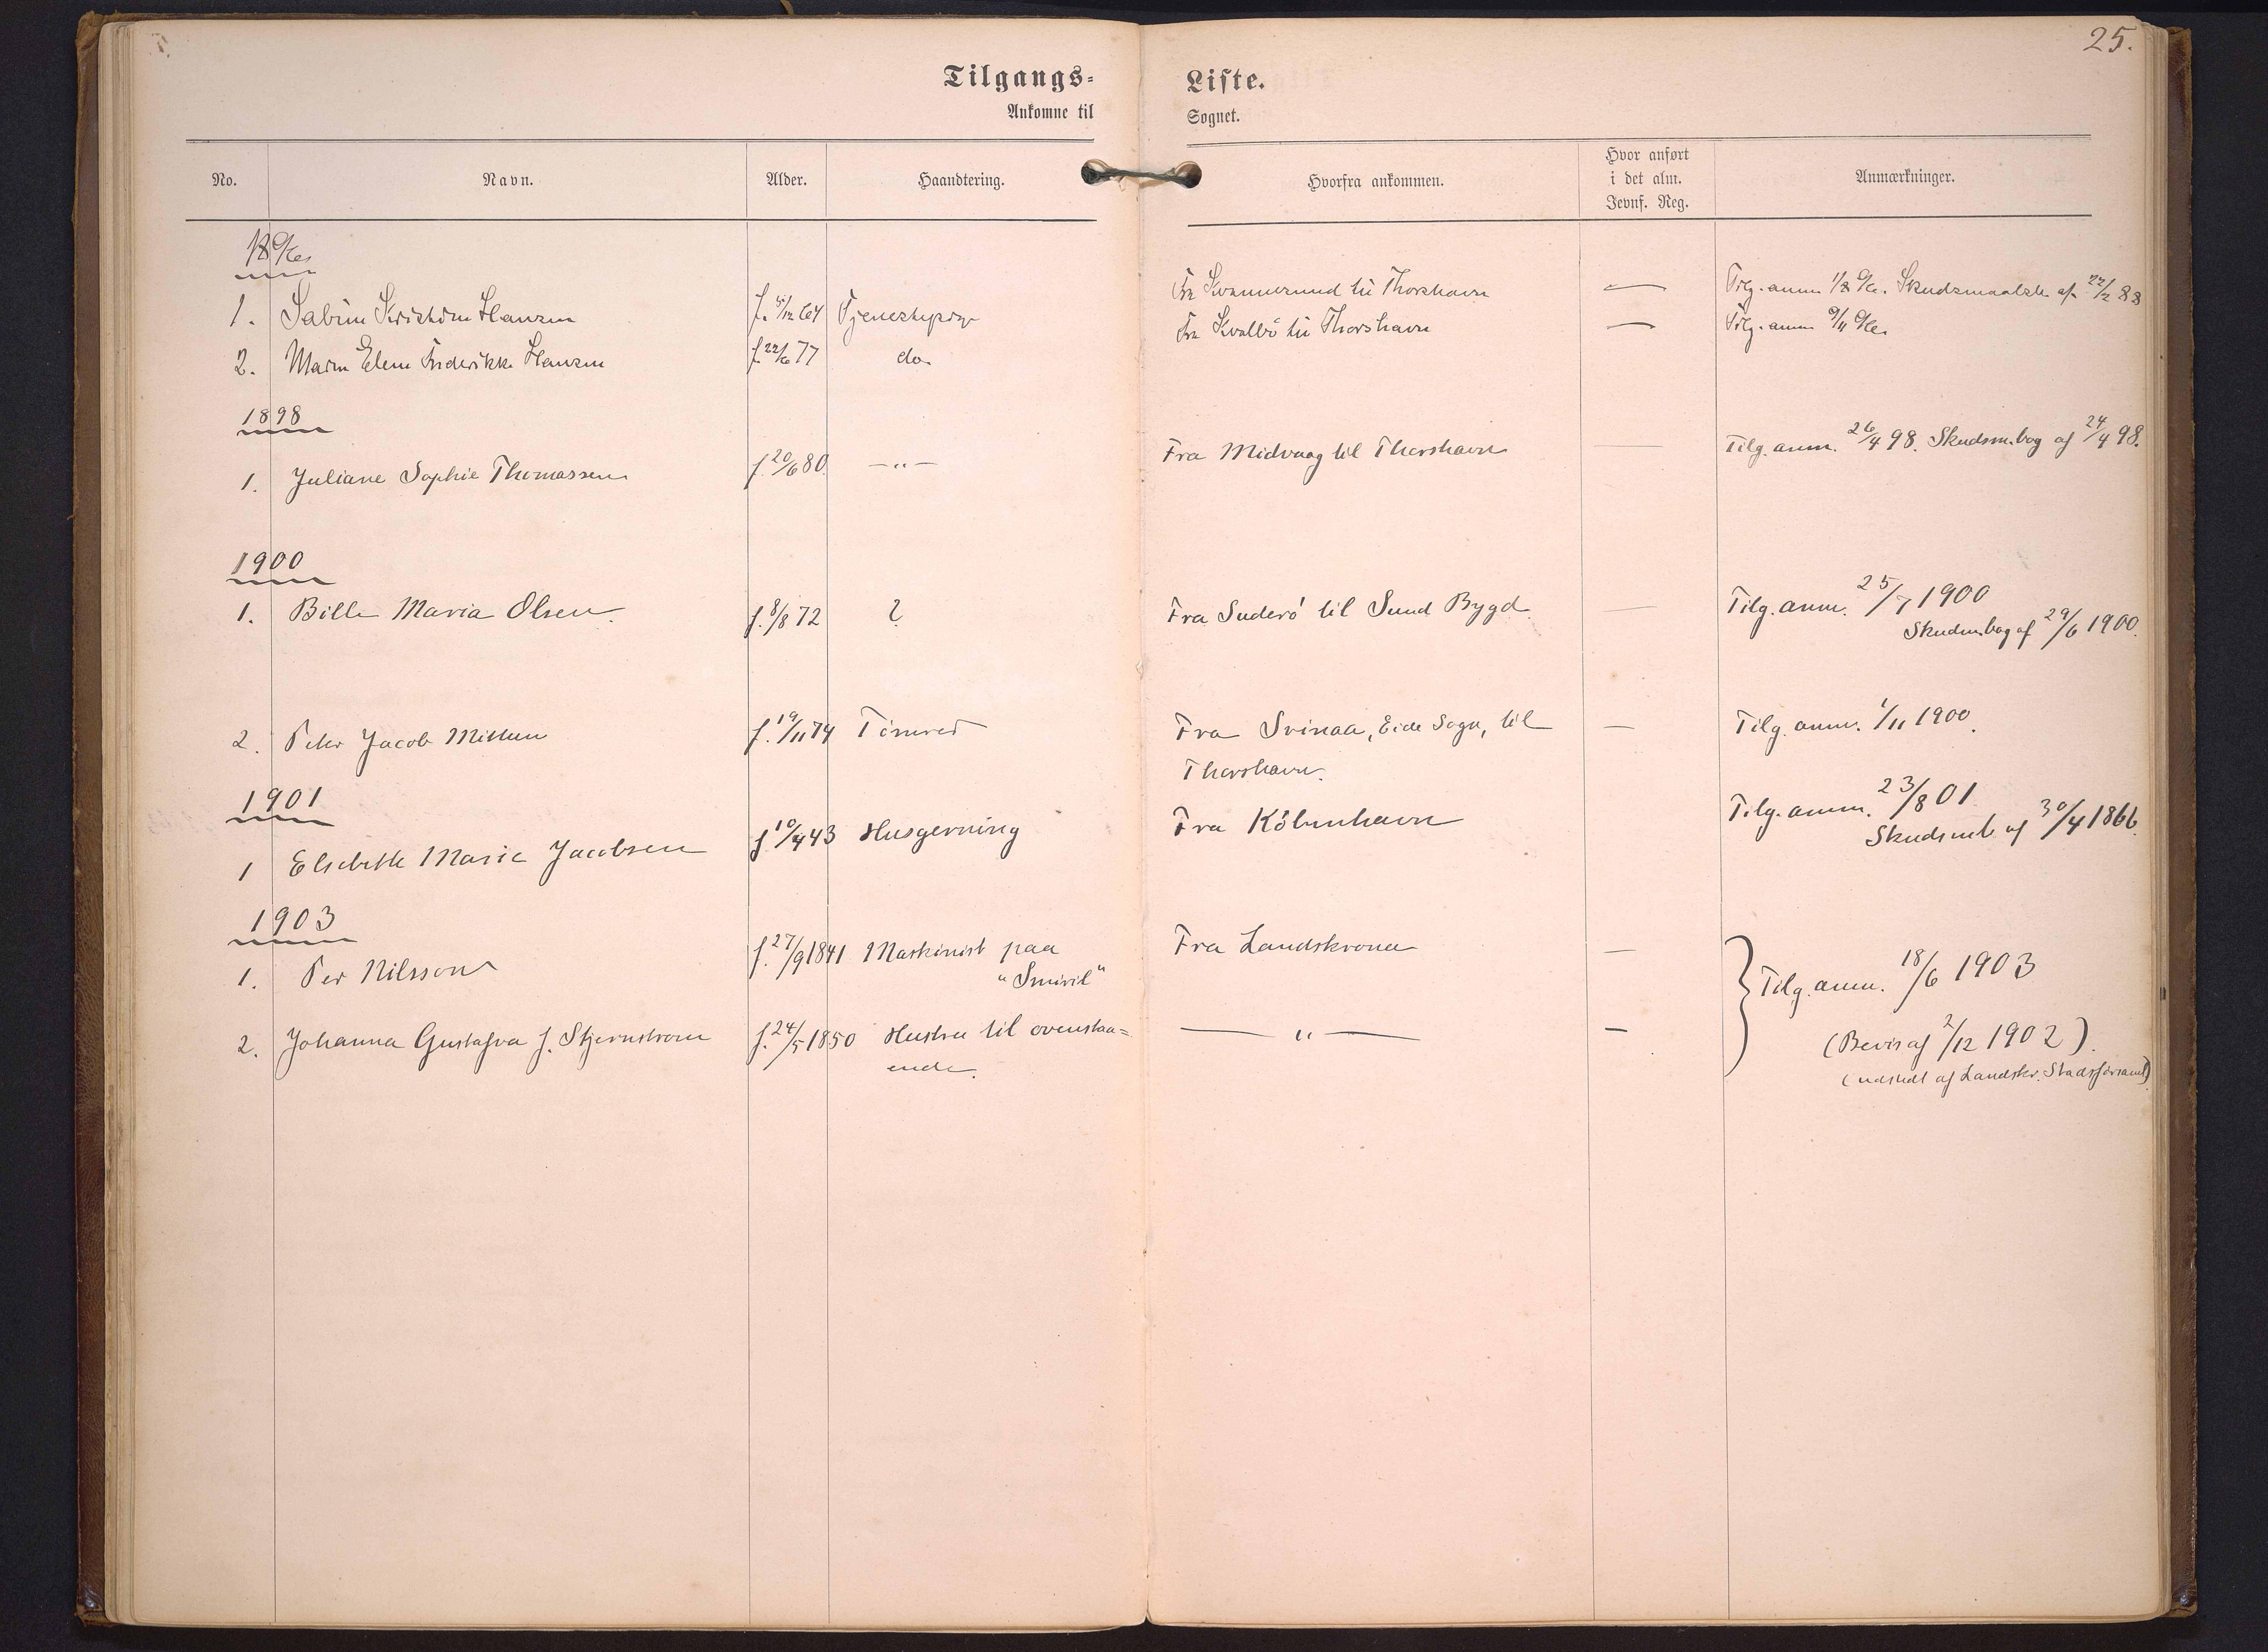 25.
Tilgangs-
Liste.
Ankomne til
Sognet.
No. Navn. Alder. Haandtering. Hvorfra ankommen. Hvor anført i det alm. Jevnf. Reg. Anmærkninger.
1. Sabine Kristine Hansen f. 5/12 64 Tjenestepige Fra Kvannesund til Thorshavn — Tilg. anm. 1/8 Skudsmaalsb. af 22/2 88
2. Maren Elene Frederikke Hansen f. 22/6 77 do Fra Kvalbö til Thorshavn — Tilg. anm 9/11
1898
1. Juliane Sophie Thomassen f. 20/6 80. —"— Fra Midvaag til Thorshavn — Tilg. anm. 26/4 98. Skudsm.bog af 24/4 98.
1900
1. Bille Maria Olsen. f. 8/8 72 ? Fra Suderö til Sund Bygd. — Tilg. anm. 25/7 1900
Skudsm.bog af 29/6 1900.
2. Peter Jacob f. 19/11 74 Tömred Fra Svinaa, Eide Sogn, til — Tilg. anm. 1/11 1900.
Thorshavn.
1901
1 Elsebeth Marie Jacobsen f. 10/4 43 Husgerning Fra Köbenhavn Tilg. anm. 23/8 01.
Skudsmb. af 30/4 1866.
1903
1. Per Nilsson f. 27/9 1841 Maskinist paa Fra Landskrona — Tilg. anm. 18/6 1903
"Smiril"
2. Johanna Gustafva f. Stjernstrom f. 24/5 1850 Hustru til ovenstaa= —"— — (Bevis af 2/12 1902).
ende. (udstedt af Landskr. Stadsförsaml)